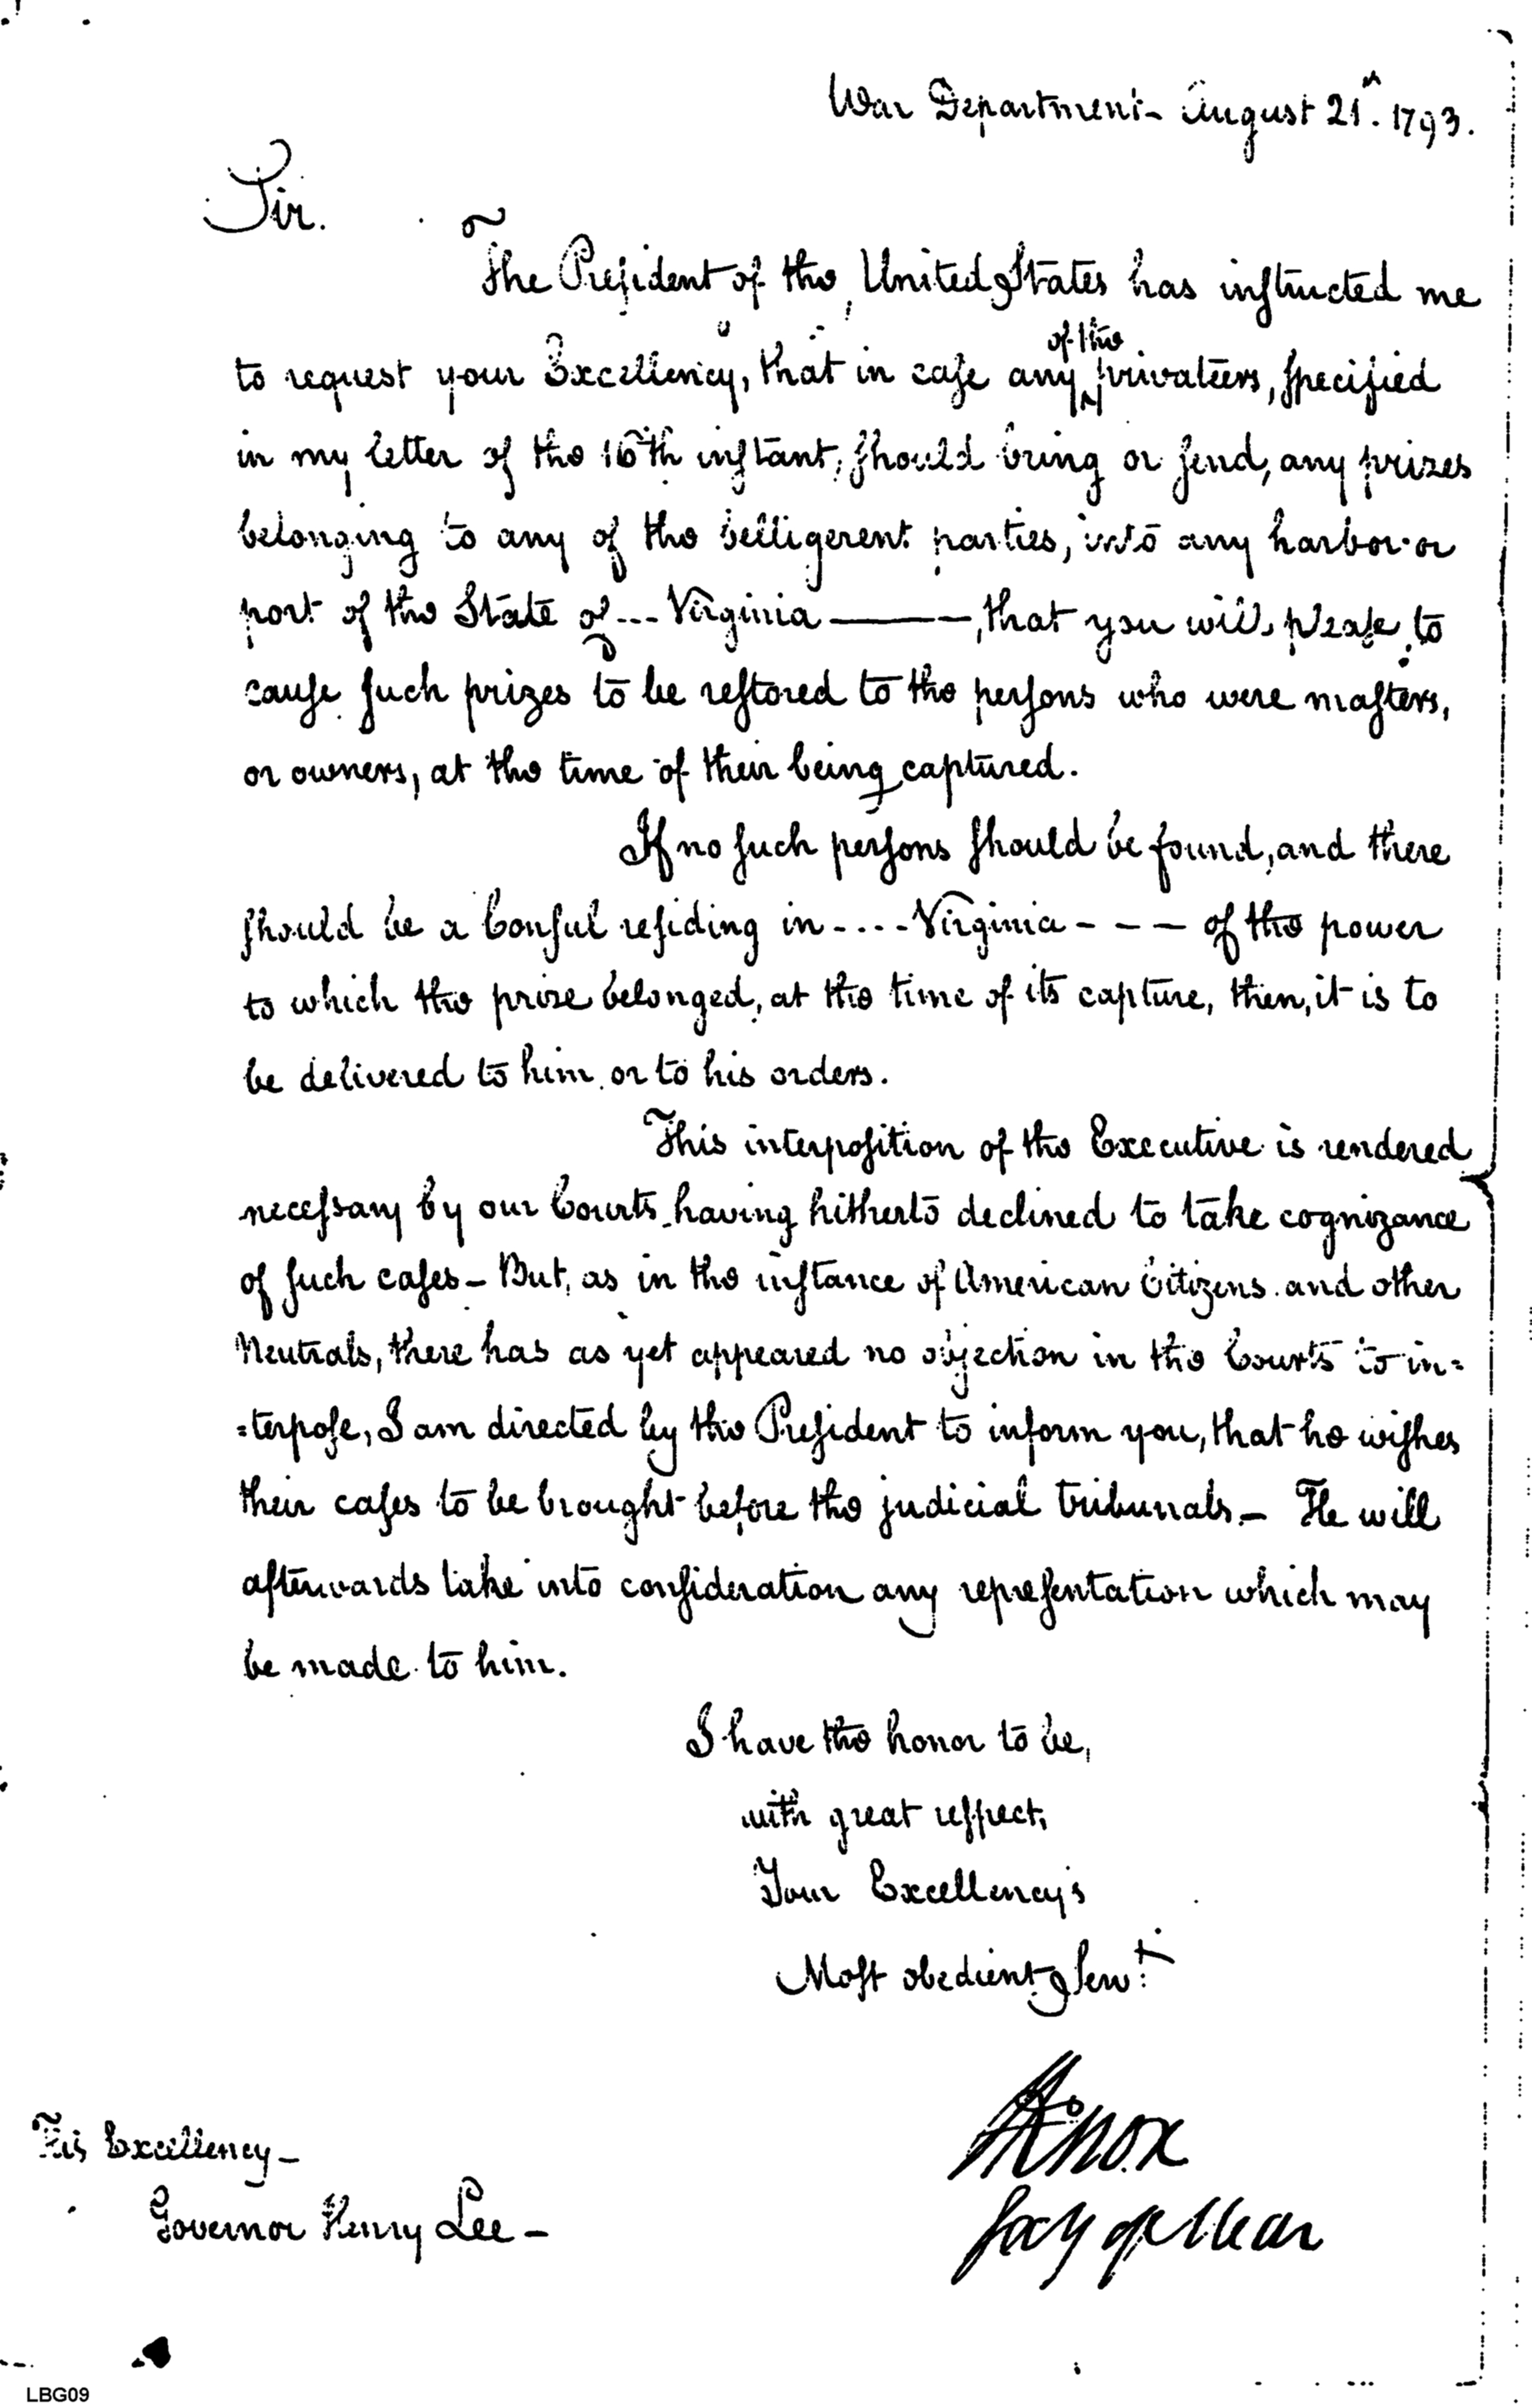 War Department - August 21st. 1793.
Sir.
The President of the United States has instructed me
of the
to request your Excellency, that in case any privateers, specified
in my letter of the 16th instant, should bring or send, any prizes
belonging to any of the belligerent parties, into any harbor or
port of the State of --- Virginia ———, that you will please to
cause such prizes to be restored to the persons who were masters,
or owners, at the time of their being captured.
If no such persons should be found, and there
should be a Consul residing in ---- Virginia - - - of the power
to which the prize belonged, at the time of its capture, then, it is to
be delivered to him or to his orders.
This interposition of the Executive is rendered
necessary by our Courts having hitherto declined to take cognizance
of such cases - But, as in the instance of American Citizens and other
Neutrals, there has as yet appeared no objection in the Courts to in=
=terpose, I am directed by the President to inform you, that he wishes
their cases to be brought before the judicial tribunals. - He will
afterwards take into consideration any representation which may
be made to him.
I have the honor to be,
with great respect,
Your Excellency's
Most obedient Servt.
HKnox
Secy of War
His Excellency -
Governor Henry Lee -
LBG09